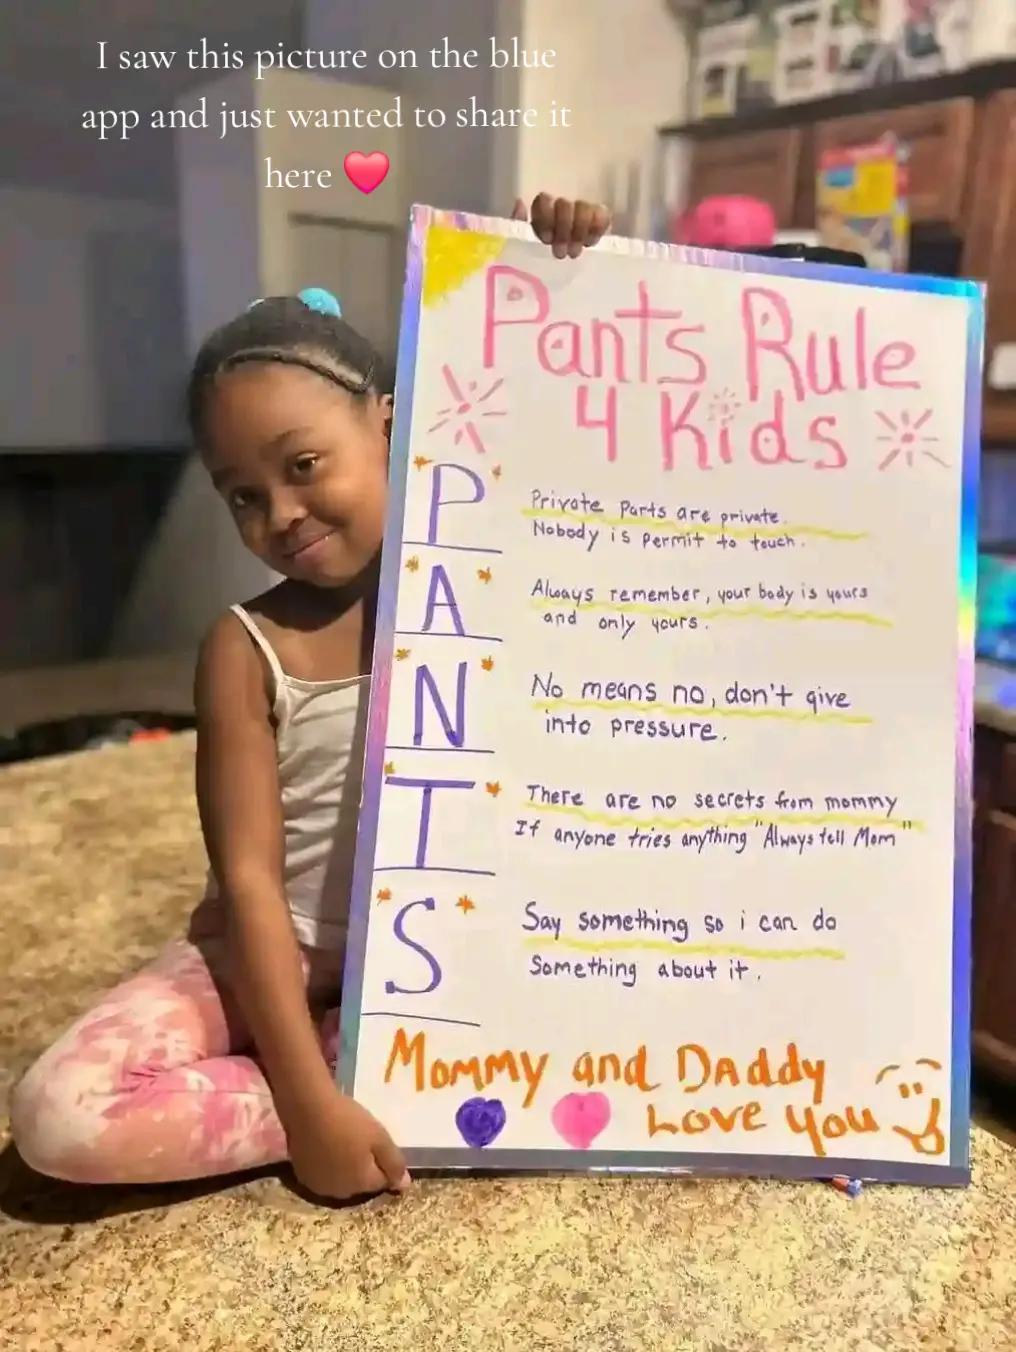 I saw this picture on the blue
app and just wanted to share it
here ❤️
Pants Rule
4 Kids
P
Private Parts are private.
Nobody is permit to touch.
A
Always remember, your body is yours
and only yours.
N
No means no, don't give
into pressure.
T
There are no secrets from mommy
If anyone tries anything "Always tell Mom"
S
Say something so i can do
Something about it.
Mommy and Daddy
Love you